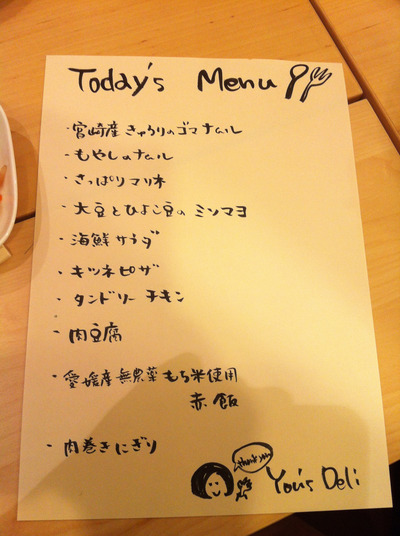 Today's Menu
・宮崎産きゅうりのゴマナムル
・もやしのナムル
・さっぱりマリネ
・大豆とひよこ豆の ミソマヨ
・海鮮サラダ
・キツネピザ
・タンドリーチキン
・肉豆腐
・愛媛産無農薬もち米使用
赤飯
・肉巻きにぎり
thank you
You's Deli